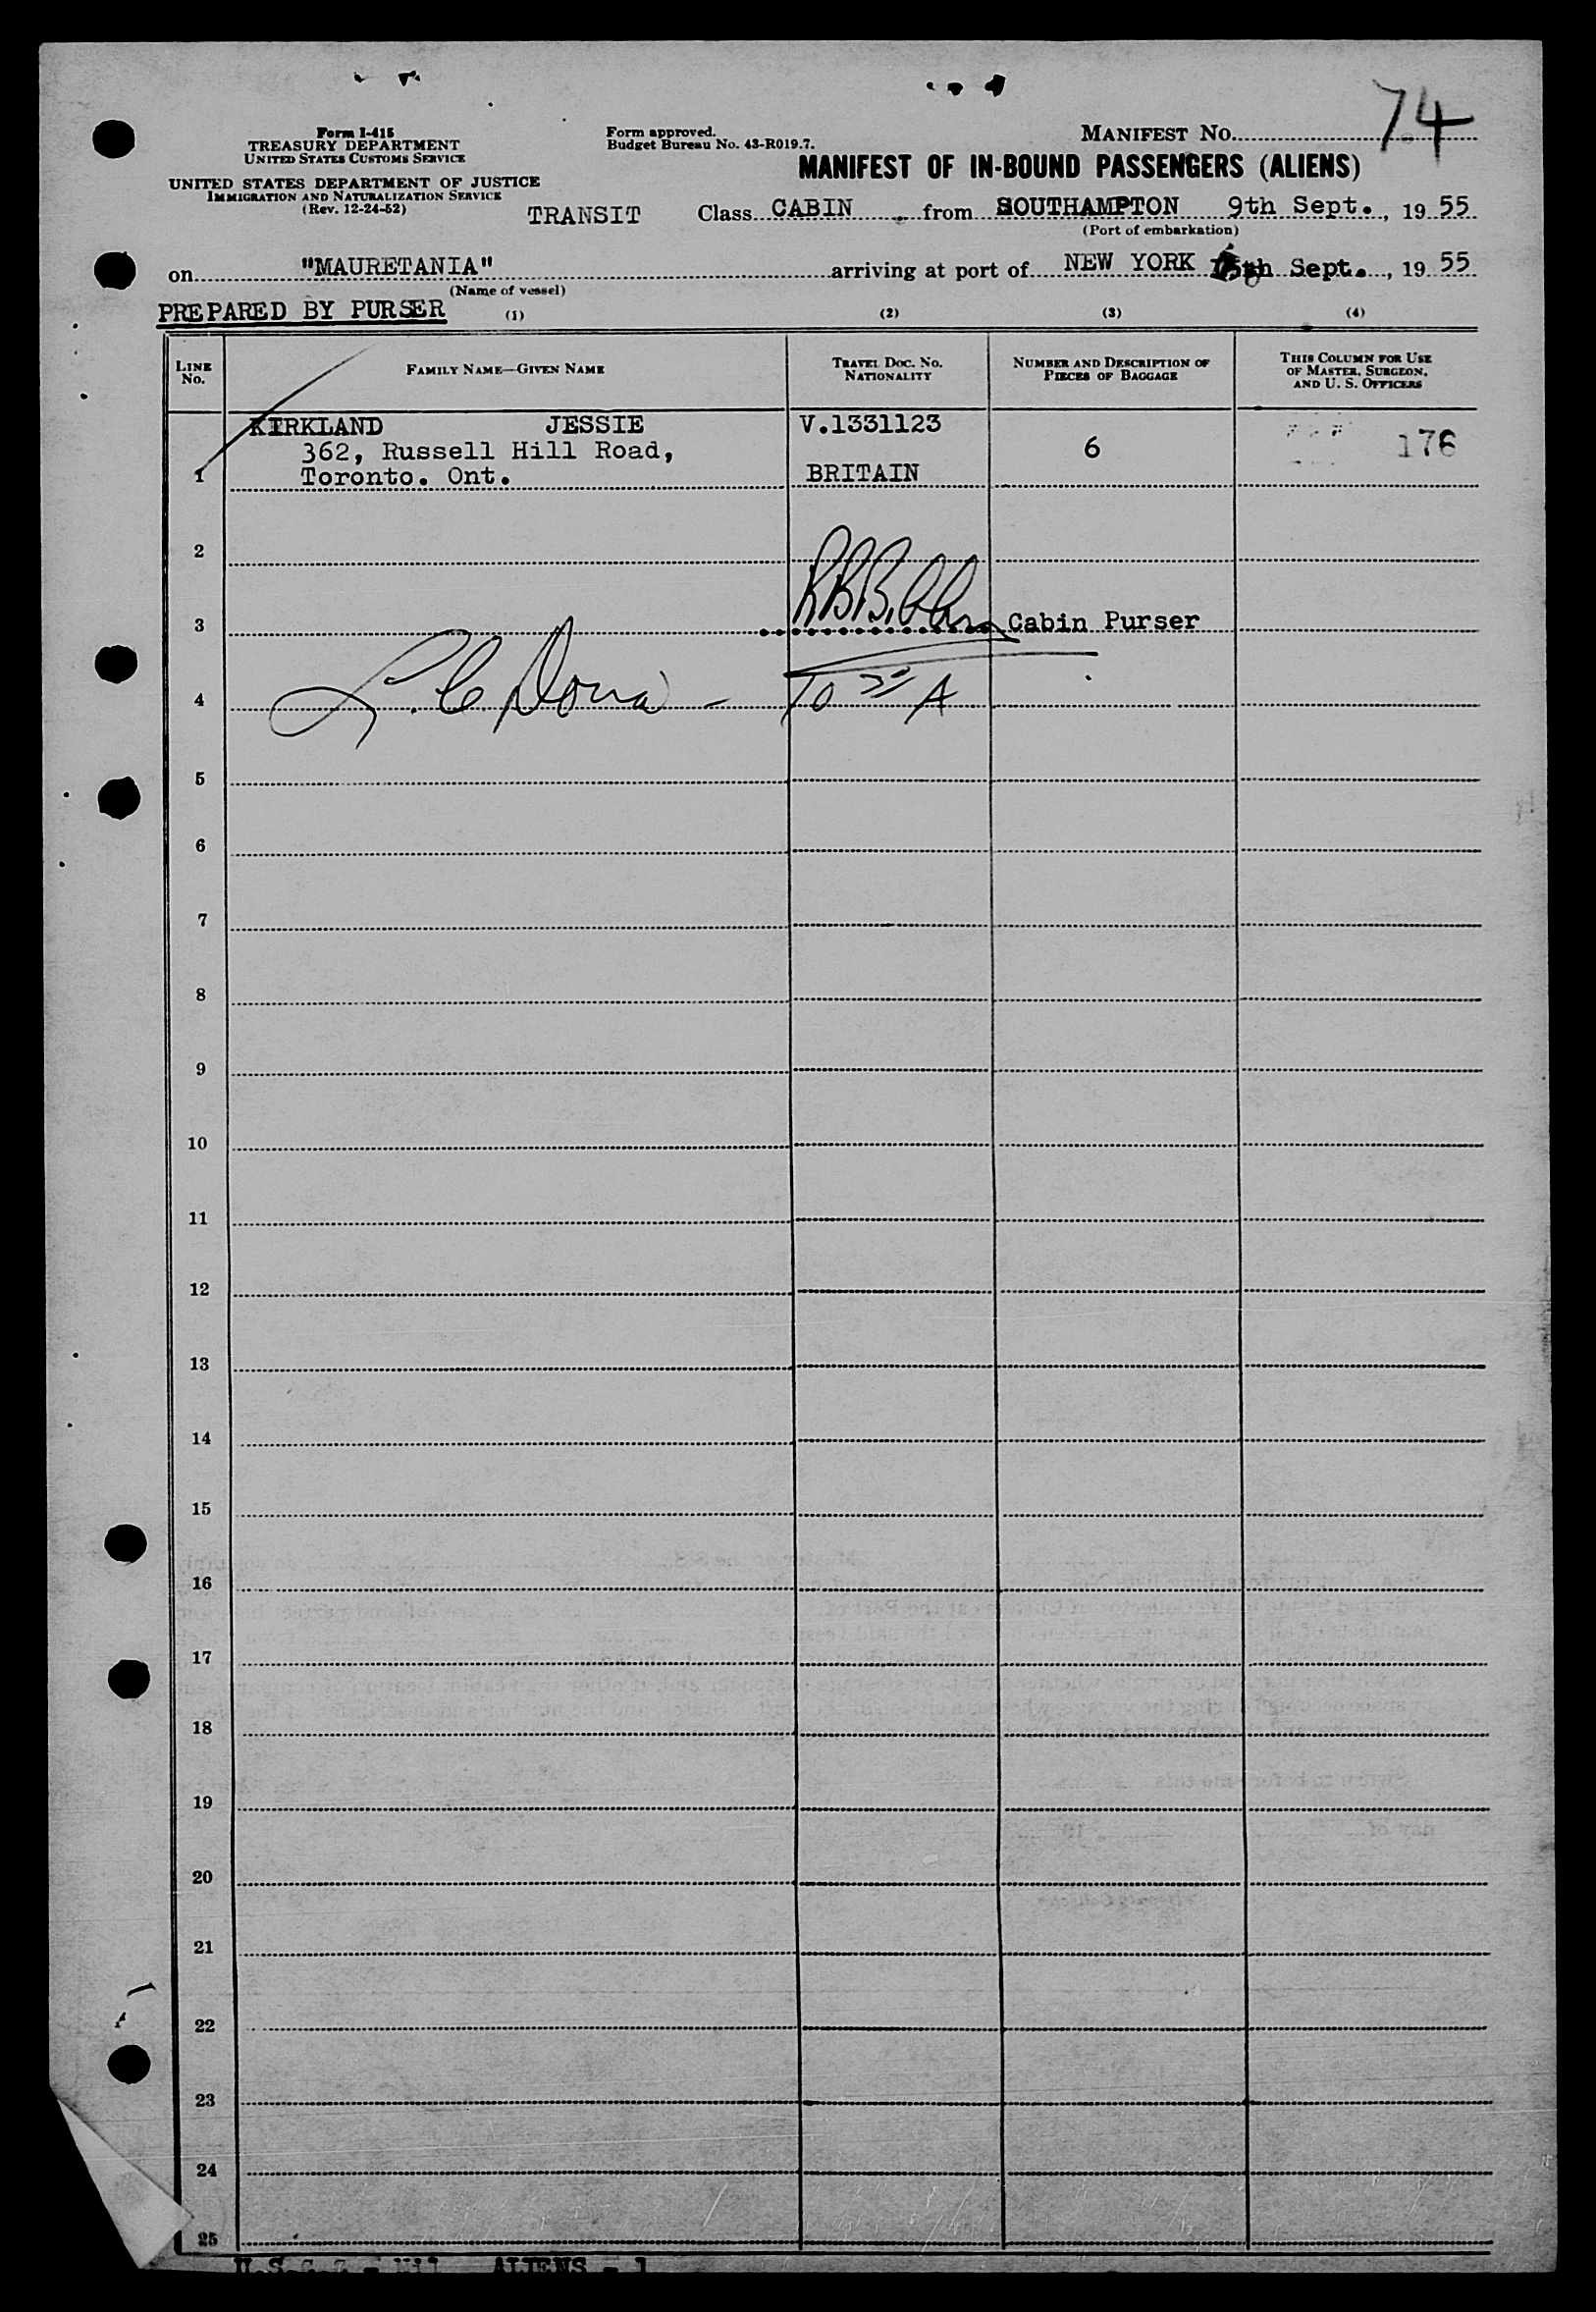 74
Form I-415
TREASURY DEPARTMENT
UNITED STATES CUSTOMS SERVICE
UNITED STATES DEPARTMENT OF JUSTICE
IMMIGRATION AND NATURALIZATION SERVICE
(Rev. 12-24-52)
Form approved.
Budget Bureau No. 43-R019.7.
MANIFEST No.
MANIFEST OF IN-BOUND PASSENGERS (ALIENS)
TRANSIT Class CABIN from SOUTHAMPTON 9th Sept., 1955
(Port of embarkation)
on "MAURETANIA" arriving at port of NEW YORK Sept., 1955
(Name of vessel)
PREPARED BY PURSER
(1) (2) (3) (4)
LINE No. FAMILY NAME—GIVEN NAME TRAVEL DOC. No. NATIONALITY NUMBER AND DESCRIPTION OF PIECES OF BAGGAGE THIS COLUMN FOR USE OF MASTER, SURGEON, AND U. S. OFFICERS
KIRKLAND JESSIE V.1331123
362, Russell Hill Road, 6 176
1 Toronto. Ont. BRITAIN
2
3 Cabin Purser
4
5
6
7
8
9
10
11
12
13
14
15
16
17
18
19
20
21
22
23
24
25
ALIENS - 1